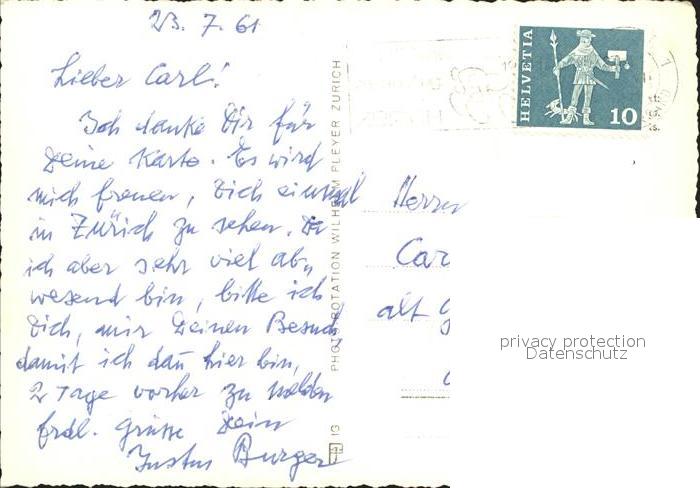 23. 7. 61
Lieber Carl!
Ich danke Dir für
Deine Karte. Es wird
mich freuen, Dich einmal
in Zürich zu sehen. Da
ich aber sehr viel ab„
wesend bin, bitte ich
Dich, mir Deinen Besuch,
damit ich dan hier bin,
2 Tage vorher zu melden
frdl. Grüsse Dein
Justus Burger
PHOTO ROTATION WILHELM PLEYER ZÜRICH
IG
HELVETIA
10
Herrn
Car
alt G
privacy protection
Datenschutz